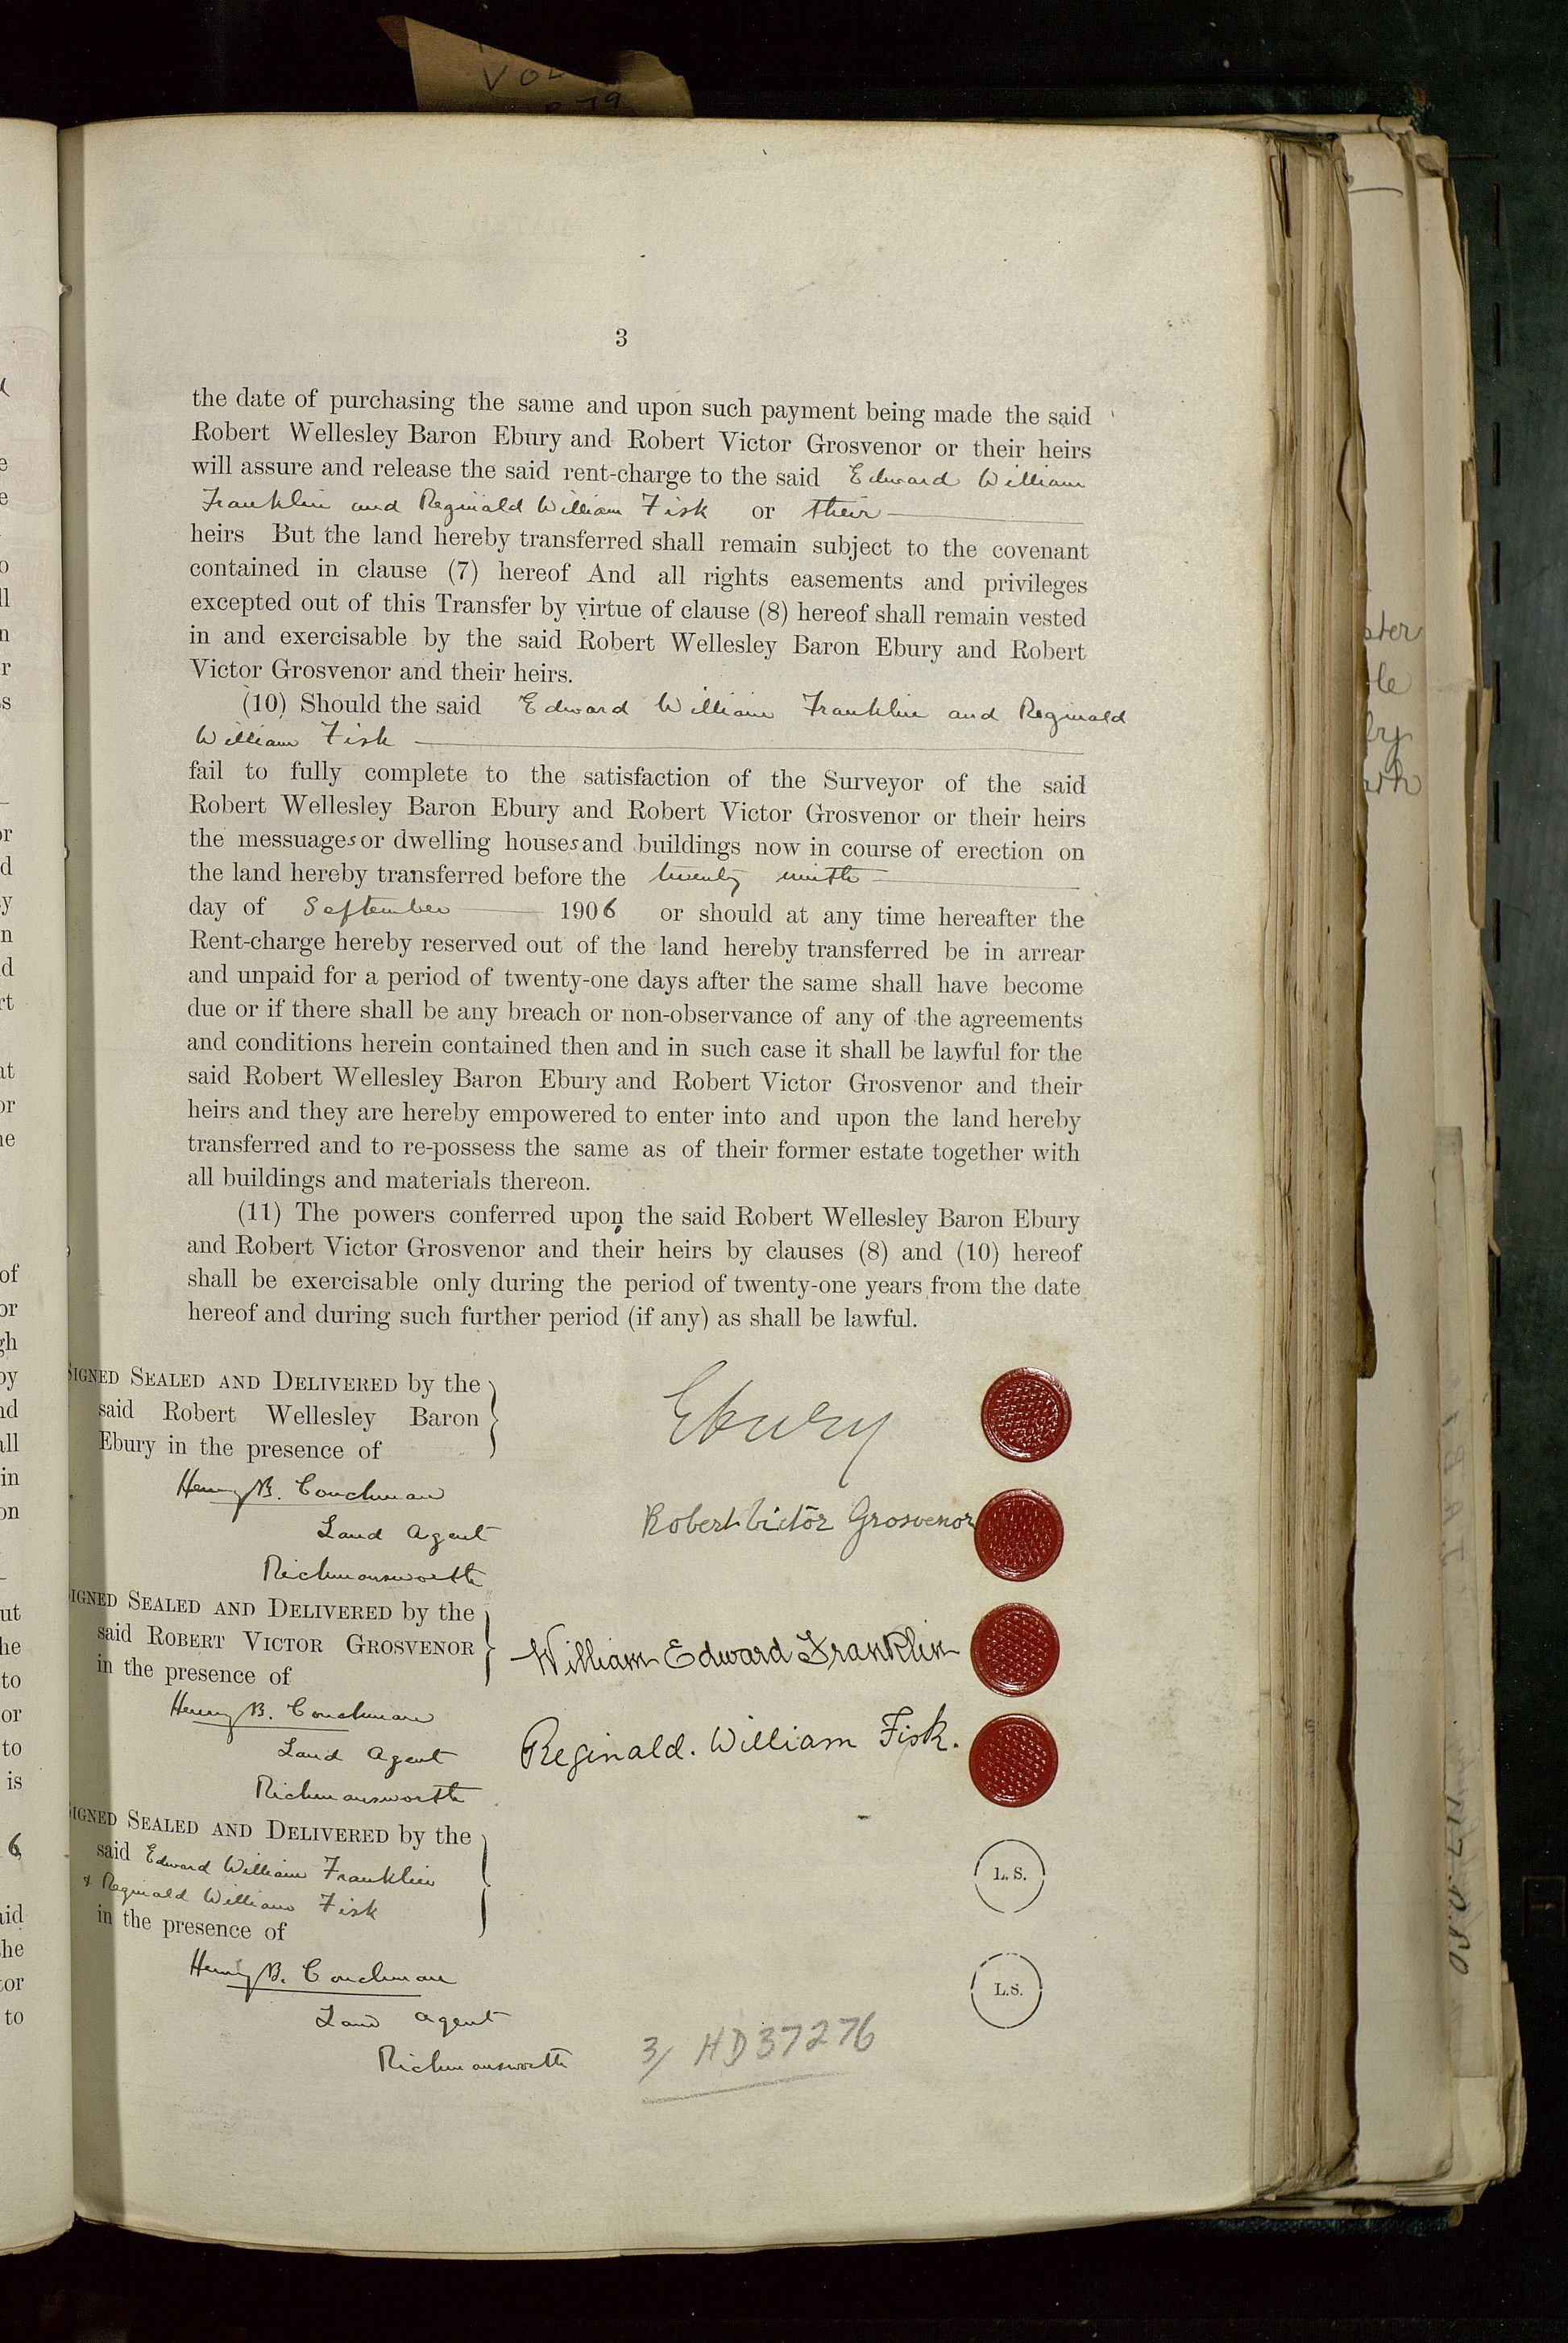 3
the date of purchasing the same and upon such payment being made the said
Robert Wellesley Baron Ebury and Robert Victor Grosvenor or their heirs
will assure and release the said rent-charge to the said Edward William
Franklin and Reginald William Fisk or their
heirs But the land hereby transferred shall remain subject to the covenant
contained in clause (7) hereof And all rights easements and privileges
excepted out of this Transfer by virtue of clause (8) hereof shall remain vested
in and exercisable by the said Robert Wellesley Baron Ebury and Robert
Victor Grosvenor and their heirs.
(10) Should the said Edward William Franklin and Reginald
William Fisk
fail to fully complete to the satisfaction of the Surveyor of the said
Robert Wellesley Baron Ebury and Robert Victor Grosvenor or their heirs
the messuages or dwelling houses and buildings now in course of erection on
the land hereby transferred before the twenty ninth
day of September 1906 or should at any time hereafter the
Rent-charge hereby reserved out of the land hereby transferred be in arrear
and unpaid for a period of twenty-one days after the same shall have become
due or if there shall be any breach or non-observance of any of the agreements
and conditions herein contained then and in such case it shall be lawful for the
said Robert Wellesley Baron Ebury and Robert Victor Grosvenor and their
heirs and they are hereby empowered to enter into and upon the land hereby
transferred and to re-possess the same as of their former estate together with
all buildings and materials thereon.
(11) The powers conferred upon the said Robert Wellesley Baron Ebury
and Robert Victor Grosvenor and their heirs by clauses (8) and (10) hereof
shall be exercisable only during the period of twenty-one years from the date
hereof and during such further period (if any) as shall be lawful.
SIGNED SEALED AND DELIVERED by the
said Robert Wellesley Baron
Ebury in the presence of
Ebury
Henry B. Couchman
Land Agent
Rickmansworth
Robert Victor Grosvenor
SIGNED SEALED AND DELIVERED by the
said ROBERT VICTOR GROSVENOR
in the presence of
William Edward Franklin
Henry B. Couchman
Land Agent
Rickmansworth
Reginald. William Fisk.
SIGNED SEALED AND DELIVERED by the
said Edward William Franklin
& Reginald William Fisk
in the presence of
L. S.
Henry B. Couchman
Land Agent
Rickmansworth
L.S.
3/ HD37276